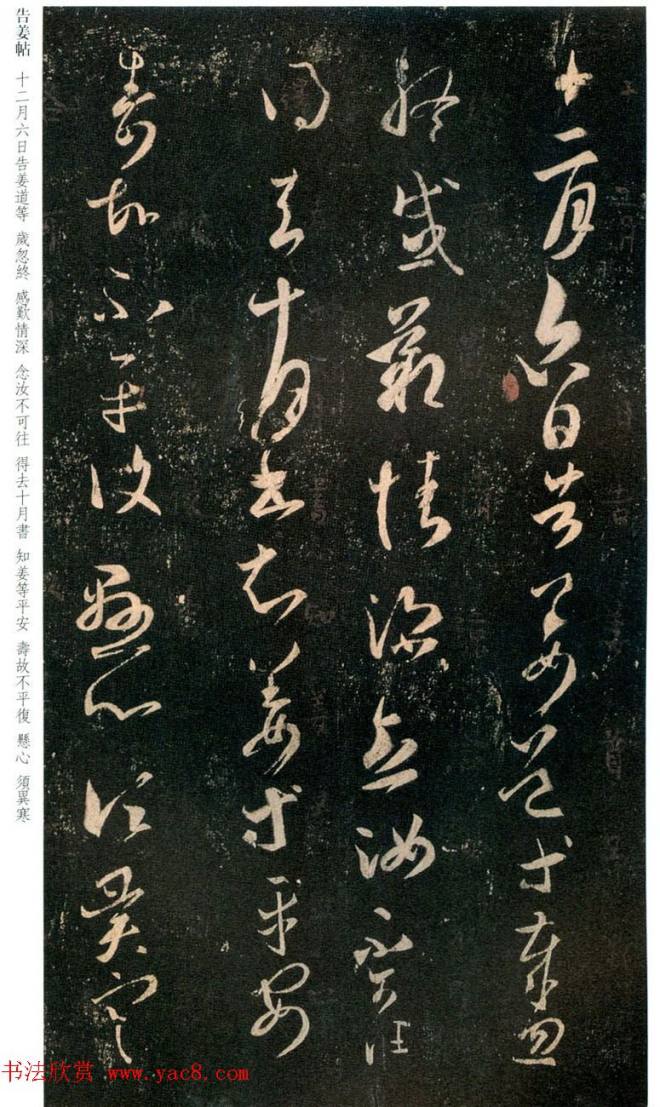 十二月六日告姜道等歲忽
終感歎情深念汝不可往
得去十月書知姜等平安
壽故不平復懸心須異寒
告姜帖 十二月六日告姜道等 歲忽終 感歎情深 念汝不可往 得去十月書 知姜等平安 壽故不平復 懸心 須異寒
书法欣赏 www.yac8.com